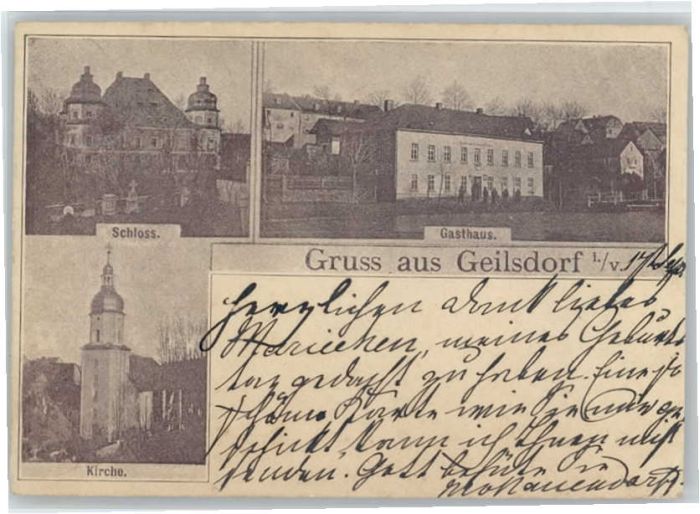 Schloss.
Gasthaus.
Gruss aus Geilsdorf i./v.
Kirche.
Herzlichen Dank liebes
Mariechen, meines Geburts
tag gedacht zu haben. Eine so
schöne Karte wie Sie mir ge
schickt, kann ich Ihnen nicht
senden. Gott behüte Sie